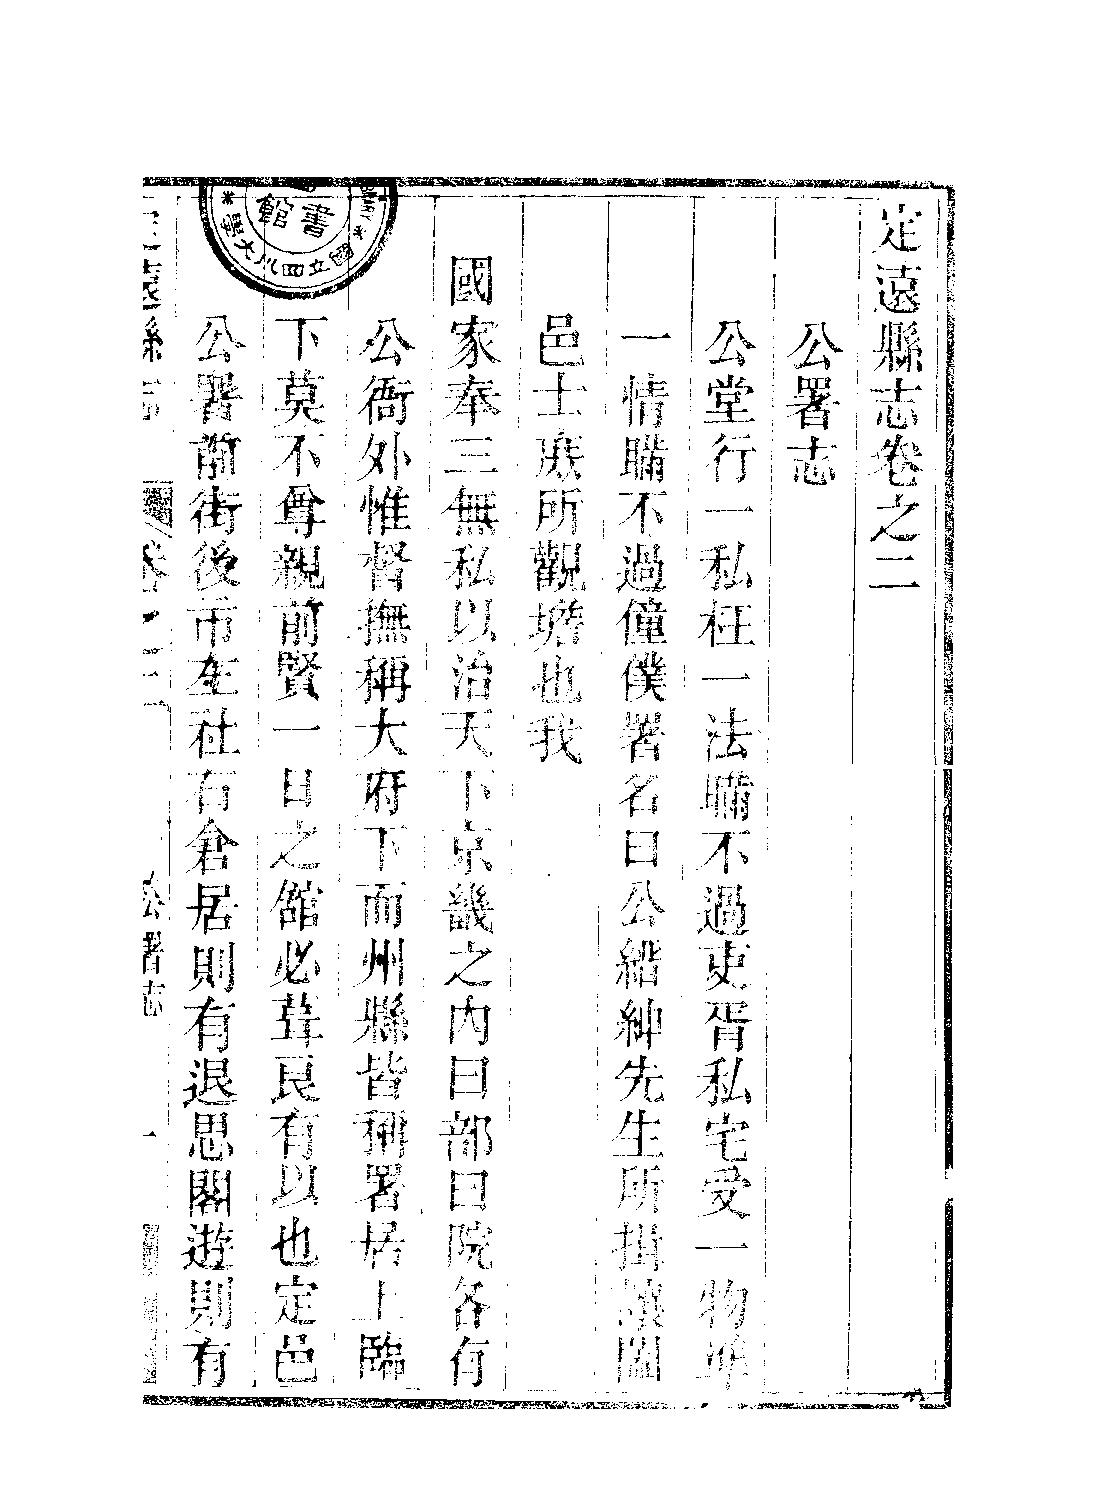 定遠縣志卷之二
公署志
公堂行一私枉一法瞞不過吏胥私宅受一物準
一情瞞不過僮僕署名曰公縉紳先生所揖讓闔
邑士庶所觀瞻也我
國家奉三無私以治天下京畿之內曰部曰院各有
公衙外惟督撫稱大府下而州縣皆稱署居上臨
下莫不尊親前賢一日之館必葺良有以也定邑
公署前街後市左社右倉居則有退思閣遊則有
定遠縣志 卷之二 公署志 一
書館
國立四川大學